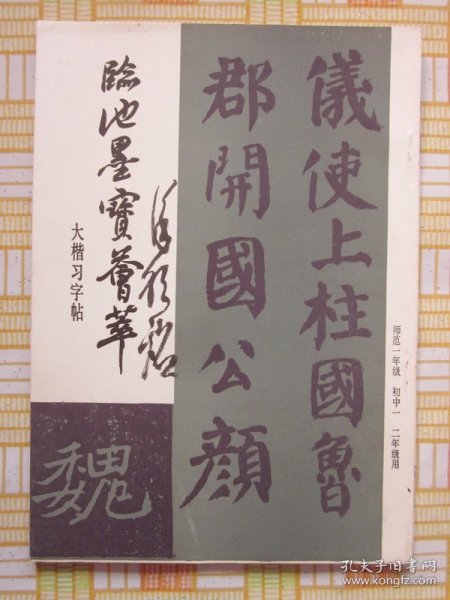 儀使上柱國魯
郡開國公顏
臨池墨寶薈萃
大楷习字帖
魏
师范一年级 初中一 二年级用
孔夫子旧书网
www.kongfz.com